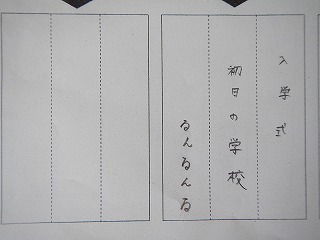 入学式
初日の学校
るんるんる